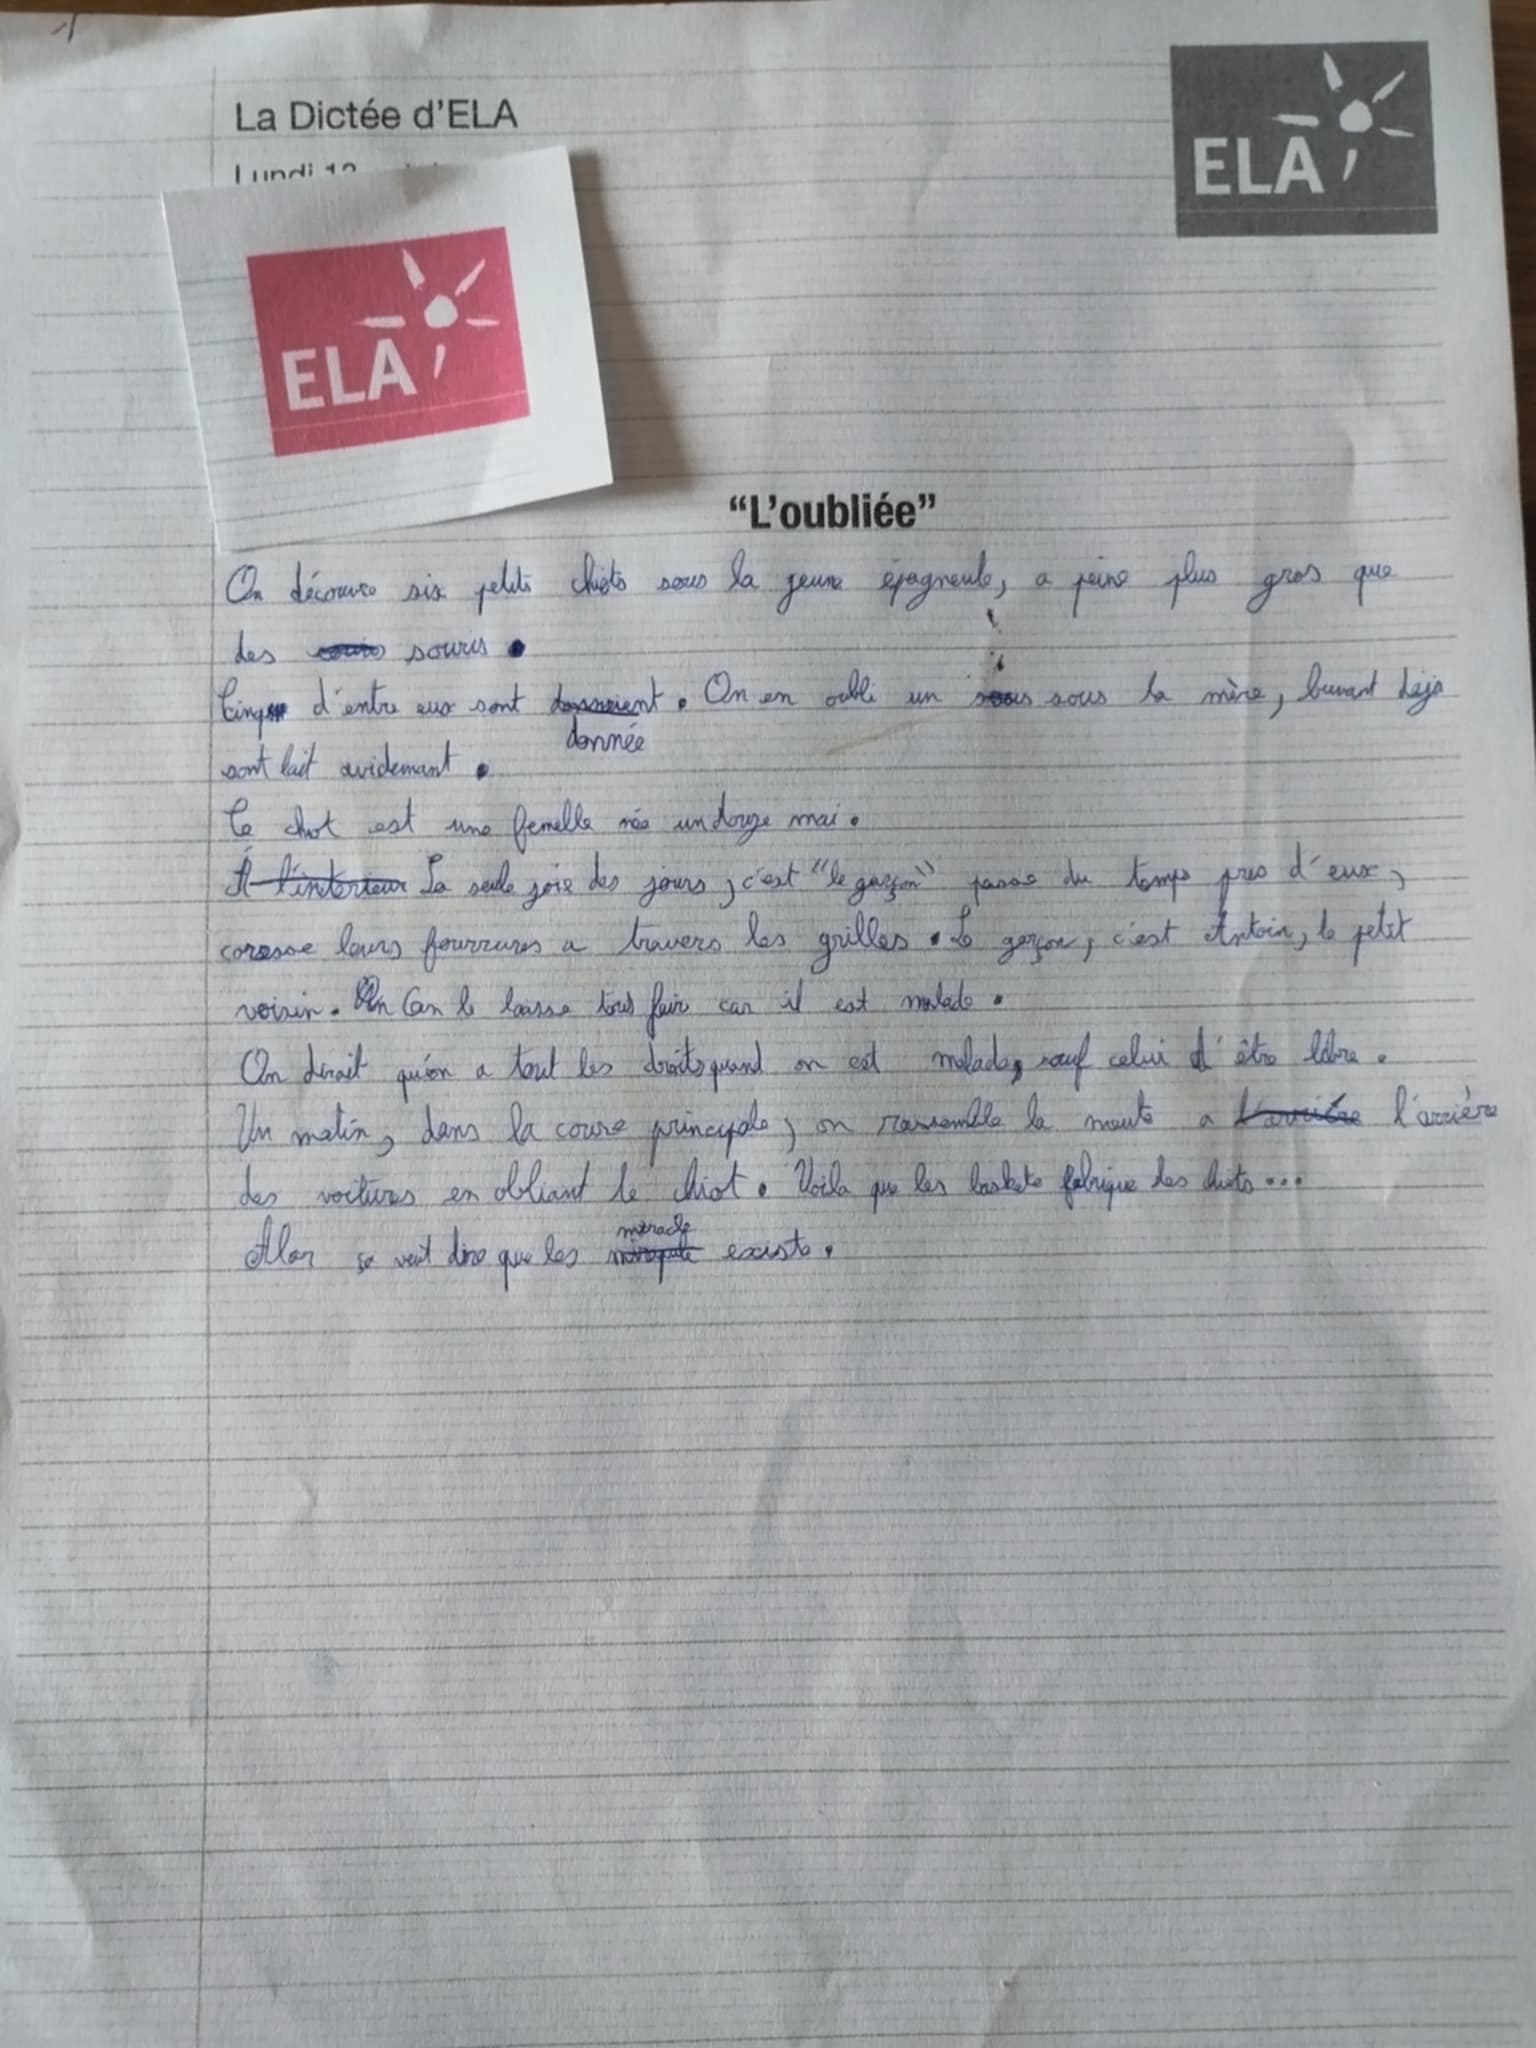 La Dictée d'ELA
ELA
Lundi 12
ELA
"L'oubliée"
On découvre six petits chiots sous la jeune épagneule, a peine plus gros que
des souris.
Cinq d'entre eux sont donnée. On en oubli un sous la mère, buvant déja
sont lait avidemant.
Ce chot est une femelle née un douze mai.
A l'interieur La seule joie des jours, c'est "le garçon" passe du temps pres d'eux,
caresse leurs fourrures a travers les grilles. Le garçon, c'est Antoin, le petit
voisin. On le laisse tout fair car il est malade.
On dirait qu'on a tout les droits quand on est malade, sauf celui d'être libre.
Un matin, dans la coure principale, on rassemble la meute a l'arrière l'arrière
des voitures en obliant le chiot. Voila que les baskets fabrique des chiots...
Alor ça veut dire que les miracle existe.